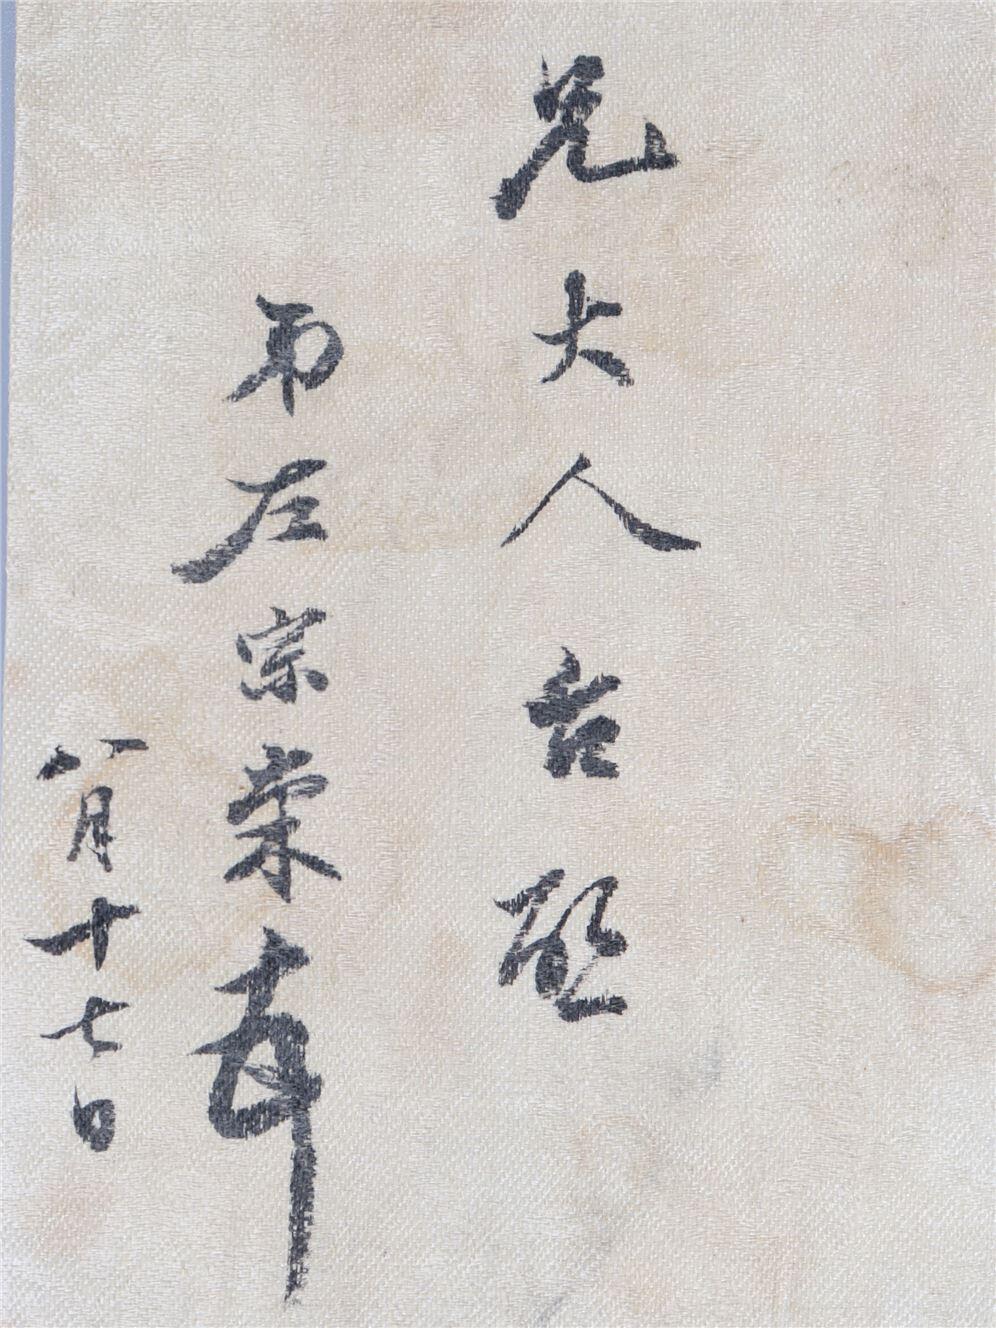 兄大人台啟
弟左宗棠拜
八月十七日